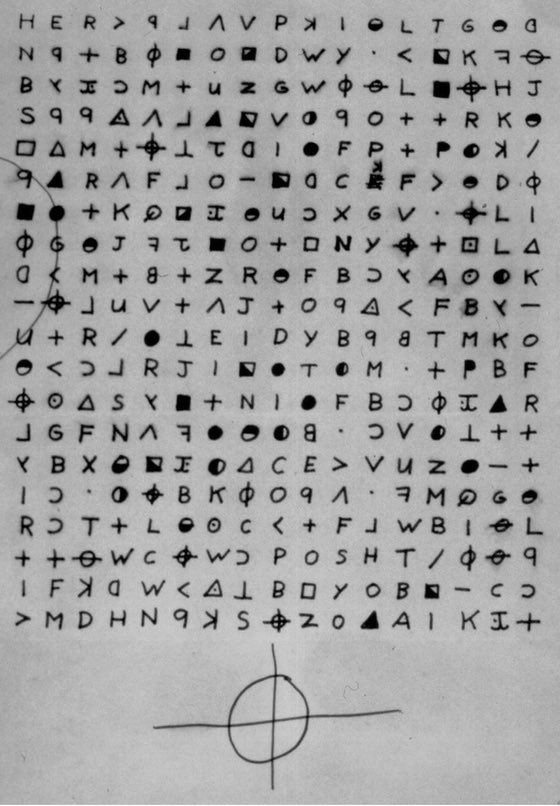 H E R > ꟼ ⅃ Λ V P ꓘ I ◒ L T G ◒ ᗡ
N ꟼ + B ϕ ■ O ◪ D W Y · < ◩ K ꟻ ⊖
B ⅄ Ɪ Ɔ M + U Z G W ϕ ⊖ L ■ ⌖ H J
S ꟼ ꟼ ◬ Λ ⅃ ▲ ◩ V ◑ ꟼ O + + R K ◒
□ △ M + ⌖ ⊥ τ ᗡ I ● F P + P ◐ ꓘ /
ꟼ ▲ R Λ F ⅃ O − ◩ ᗡ C F > ◒ D ϕ
■ ● + K ∅ ◪ Ɪ ◒ U Ɔ X G V · ⌖ L I
ϕ G ◒ J ꟻ τ ■ O + □ N Y ⌖ + ⊡ L △
ᗡ < M + 8 + Z R ◒ F B Ɔ ⅄ A ⊙ ◐ K
− ⌖ ⅃ U V + Λ J + O ꟼ ◬ < F B Y −
U + R / ● ⊥ E I D Y B ꟼ 8 T M K O
◒ < Ɔ ⅃ R J I ◩ ● T ◐ M · + P B F
⌖ ⊙ △ S ⅄ ■ + N I ● F B Ɔ ϕ Ɪ ▲ R
⅃ G F N Λ ꟻ ● ◒ ◐ 8 · Ɔ V ◐ ⊥ + +
⅄ B X ◒ ◩ Ɪ ◐ △ C E > V U Z ● − +
I Ɔ · ◑ ⌖ B K ϕ O ꟼ Λ · ꟻ M ∅ G ◒
R Ɔ T + L ◒ ⊙ C < + F ⅃ W B I ⊖ L
+ + ⊖ W C ⌖ W Ɔ P O S H T / ϕ ⊖ ꟼ
I F ꓘ ᗡ W < ◬ ⊥ B □ Y O B ◩ − C Ɔ
> M D H N ꟼ ꓘ S ⌖ Z O ▲ A I K Ɪ +
⌖